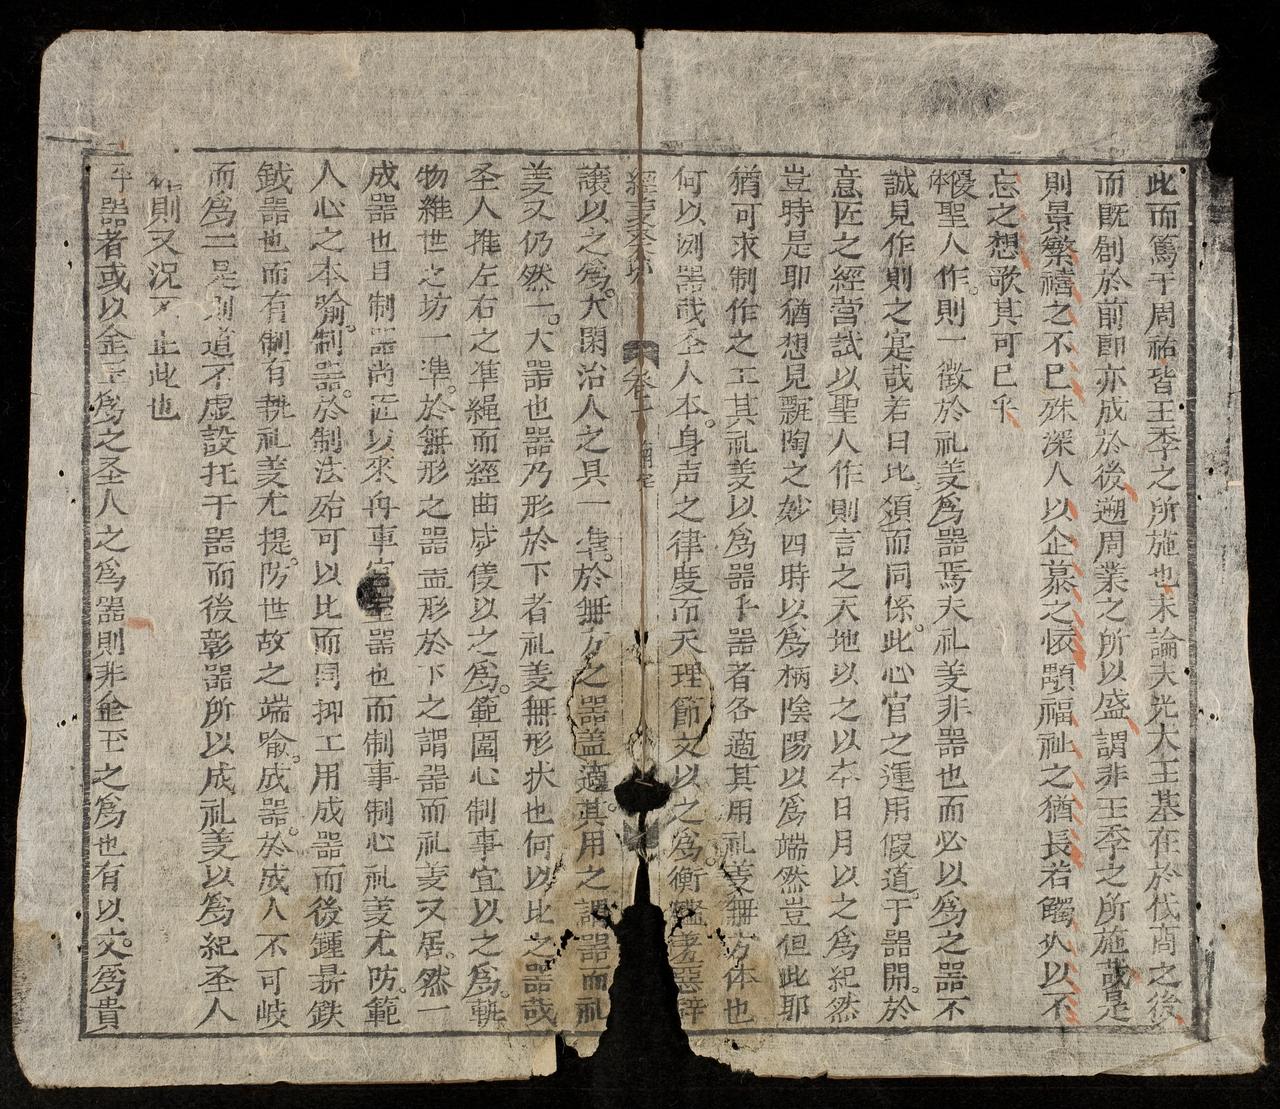 此而篤于周祐皆王季之所施也末論夫光大王基在於伐商之後
而既創於前即亦成於後遡周業之所以盛謂非王季之所施哉是
則景繁禧之不已殊深人以企慕之懷顯福祉之猶長若觸人以不
忘之想歌其可已乎
優聖人作則一徵於礼義為器焉夫礼義非器也而必以為之器不
誠見作則之寔哉若曰比類而同係此心官之運用假道于器開於
意匠之經營試以聖人作則言之天地以之以本日月以之為紀然
豈時是耶猶想見甄陶之妙四時以為柄陰陽以為端然豈但此耶
猶可求制作之工其礼義以為器乎器者各適其用礼義無方体也
何以例器哉圣人本身声之律度而天理節文以之為衡鑑
經義
卷二
譲以之為大閑治人之具一準於無方之器盖適其用之謂器而礼
義又仍然一大器也器乃形於下者礼義無形状也何以比之器哉
圣人推左右之準繩而經曲咸儀以之為範圍心制事宜以之為軌
物維世之坊一準於無形之器盖形於下之謂器而礼義又居然一
成器也且制器尚匠以來舟車宮室器也而制事制心礼義尤防範
人心之本喻制器於制法殆可以比而同抑工用成器而後鍾鼎鉄
鉞器也而有制有軌礼義尤提防世故之端喻成器於成人不可岐
而為二是則道不虚設托于器而後彰器所以成礼義以為紀圣人
作則又況不止此也
器者或以金玉為之圣人之為器則非金玉之為也有以文為貴